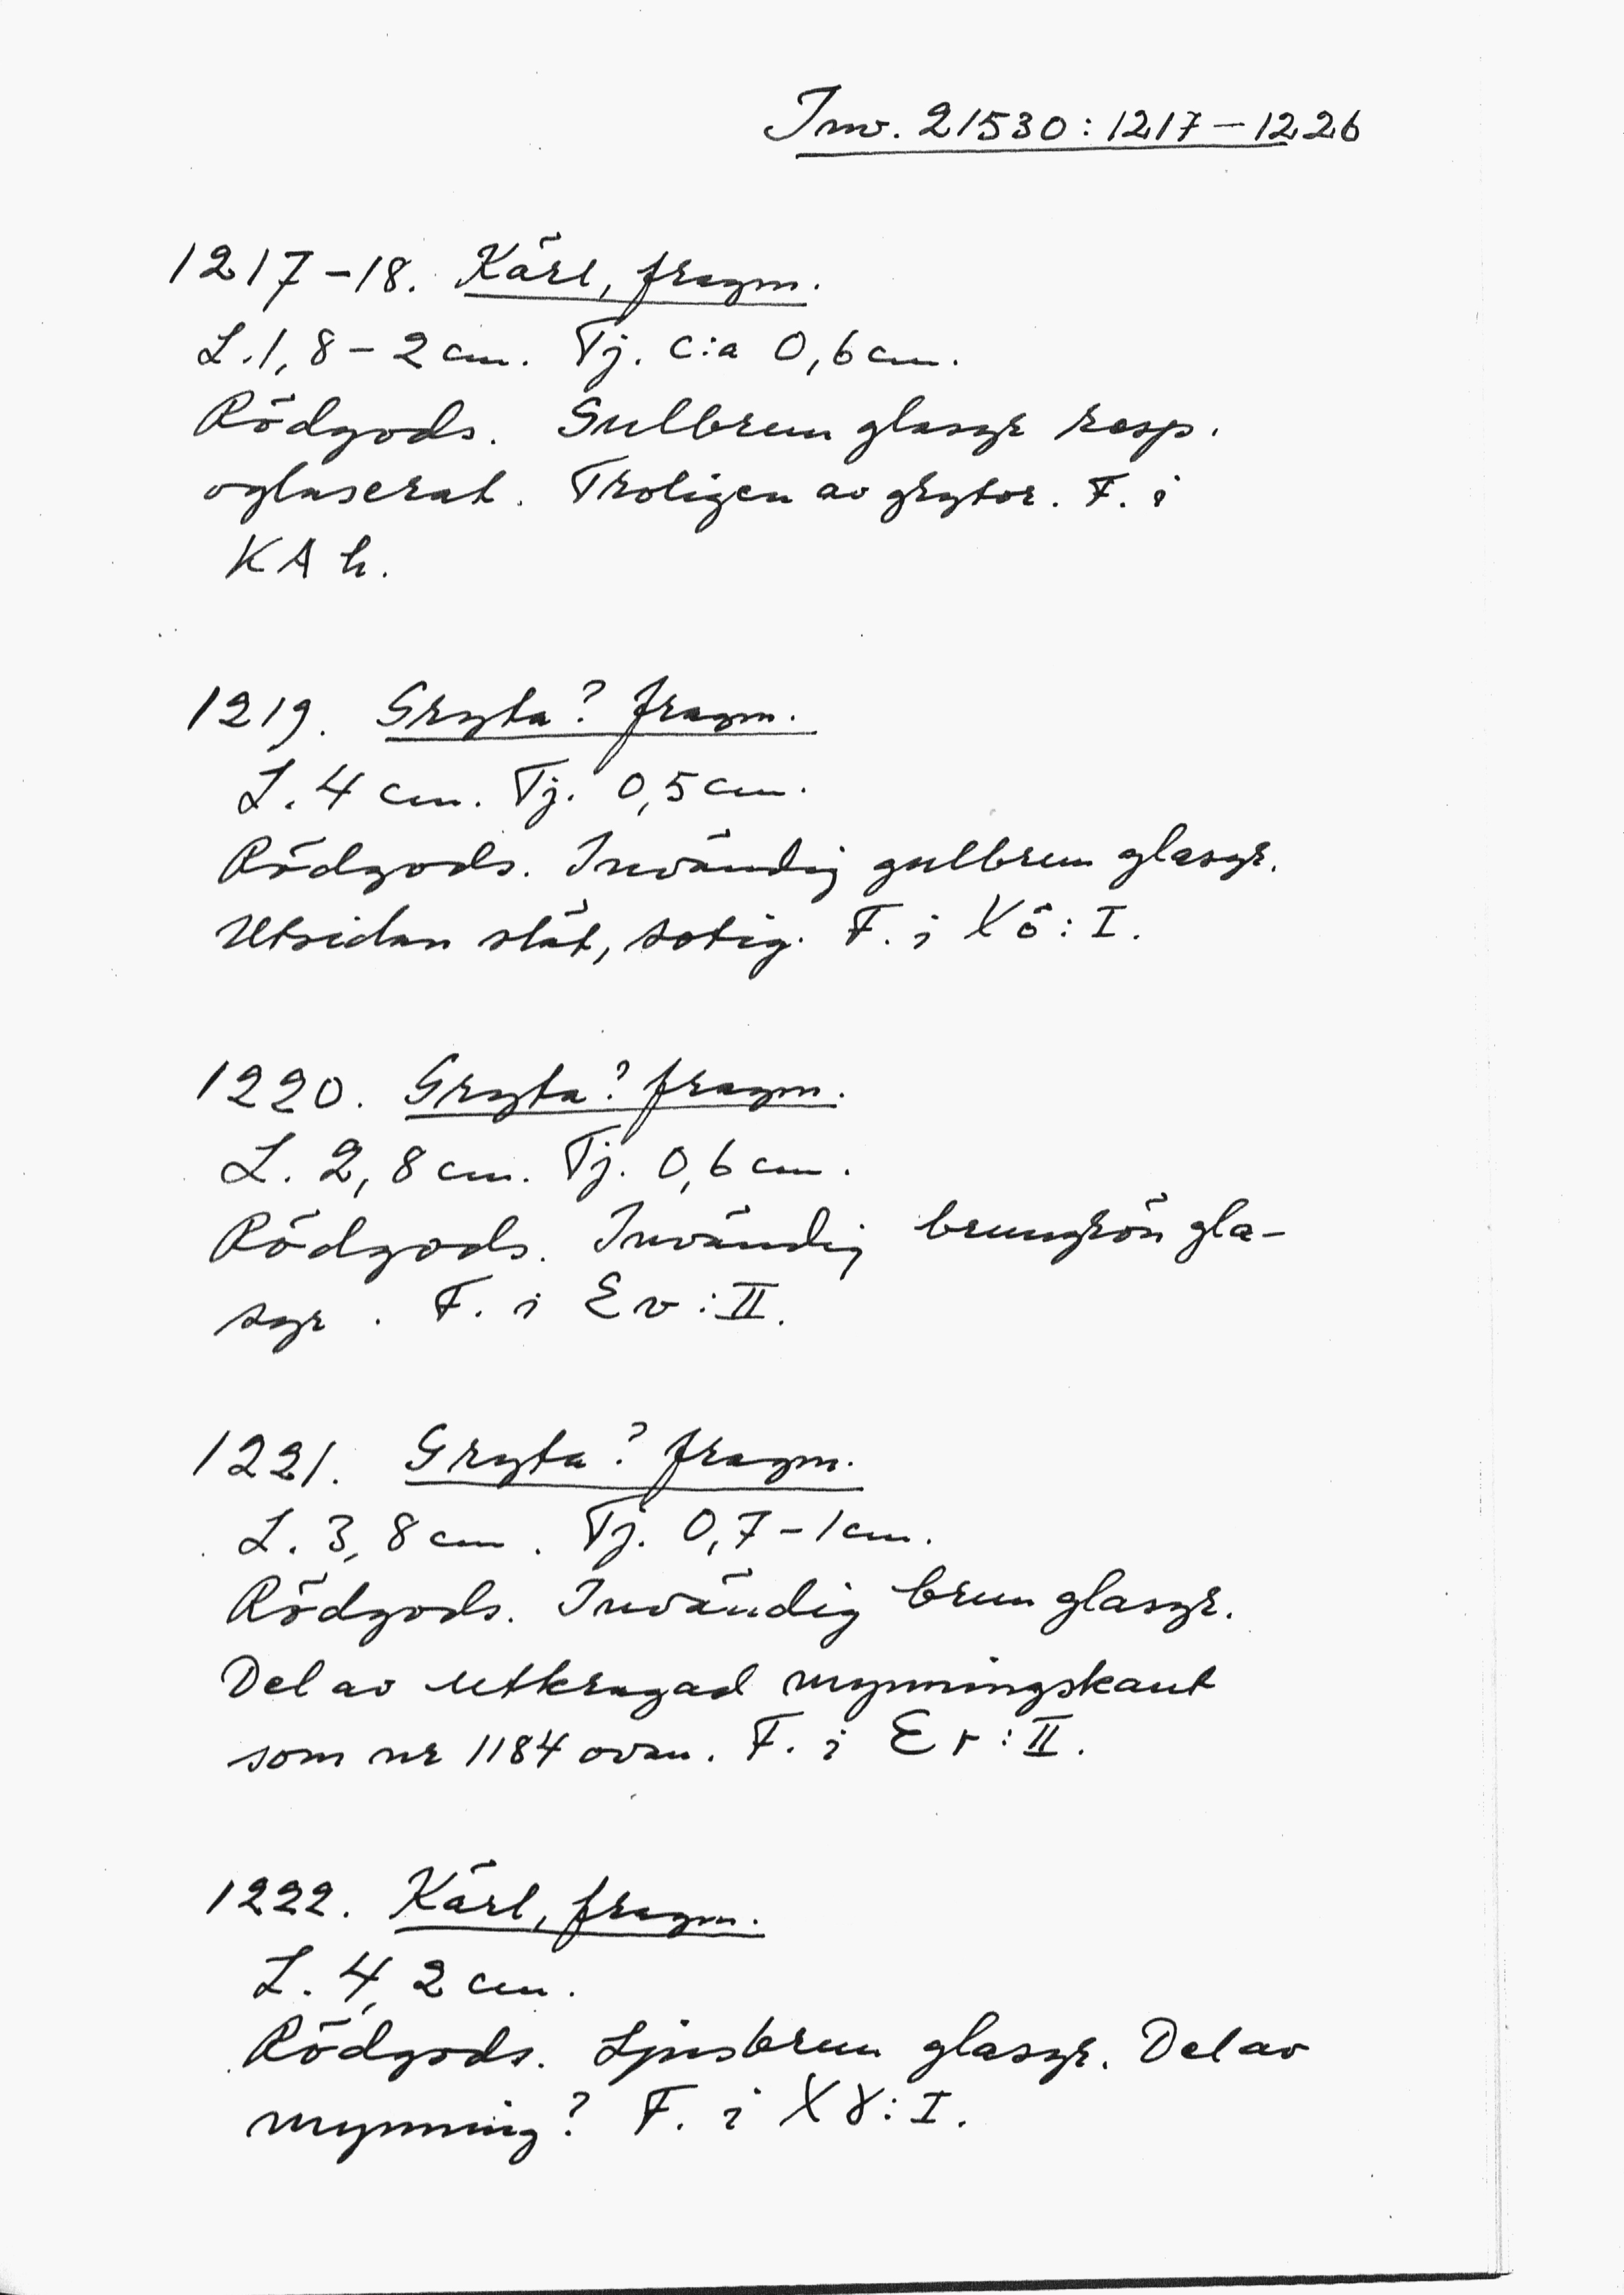 Inv. 21530:1217–1226
1217–18. Kärl, fragm.
L. 1,8–2 cm. Tj. c:a 0,6 cm.
Rödgods. Gulbrun glasyr resp.
oglaserat. Troligen av grytor. F. i
KA h.
1219. Gryta? fragm.
L. 4 cm. Tj. 0,5 cm.
Rödgods. Invändig gulbrun glasyr.
Utsidan slät, sotig. F. i X ö:I.
1220. Gryta? fragm.
L. 2,8 cm. Tj. 0,6 cm.
Rödgods. Invändig brungrön gla-
syr. F. i E v:II.
1221. Gryta? fragm.
L. 3,8 cm. Tj. 0,7–1 cm.
Rödgods. Invändig brun glasyr.
Del av utkragad mynningskant
som nr 1184 ovan. F. i E r:II.
1222. Kärl, fragm.
L. 4,2 cm.
Rödgods. Ljusbrun glasyr. Del av
mynning? F. i X :I.